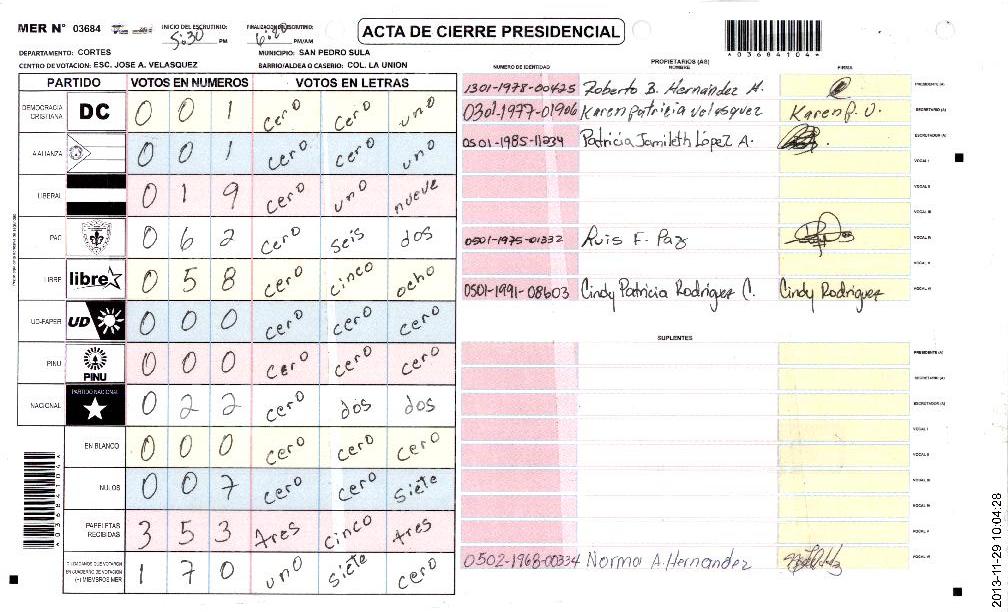 MER N° 03684
INICIO DEL ESCRUTINIO: 5:30 PM
FINALIZACION ESCRUTINIO: PM/AM
ACTA DE CIERRE PRESIDENCIAL
DEPARTAMENTO: CORTES
MUNICIPIO: SAN PEDRO SULA
CENTRO DE VOTACION: ESC. JOSE A. VELASQUEZ
BARRIO/ALDEA O CASERIO: COL. LA UNION
PARTIDO VOTOS EN NUMEROS VOTOS EN LETRAS
DEMOCRACIA CRISTIANA DC 0 0 1 cero cero uno
ALIANZA 0 0 1 cero cero uno
LIBERAL 0 1 9 cero uno nueve
PAC 0 6 2 cero seis dos
LIBRE libre 0 5 8 cero cinco ocho
UD-FAPER UD 0 0 0 cero cero cero
PINU PINU 0 0 0 cero cero cero
NACIONAL PARTIDO NACIONAL 0 2 2 cero dos dos
EN BLANCO 0 0 0 cero cero cero
NULOS 0 0 7 cero cero siete
PAPELETAS RECIBIDAS 3 5 3 tres cinco tres
CIUDADANOS QUE VOTARON
EN CUADERNO DE VOTACION
(+) MIEMBROS MER 1 7 0 uno siete cero
PROPIETARIOS (AS)
NUMERO DE IDENTIDAD NOMBRE FIRMA
1301-1978-00425 Roberto B. Hernandez H. PRESIDENTE (A)
0301-1977-01906 Karen patricia velasquez Karen p. V. SECRETARIO (A)
0501-1985-11234 Patricia Jamileth López A. ESCRUTADOR (A)
VOCAL I
VOCAL II
VOCAL III
0501-1975-01332 Luis F. Paz VOCAL IV
VOCAL V
0501-1991-08603 Cindy Patricia Rodriguez C. Cindy Rodriguez VOCAL VI
SUPLENTES
PRESIDENTE (A)
SECRETARIO (A)
ESCRUTADOR (A)
VOCAL I
VOCAL II
VOCAL III
VOCAL IV
VOCAL V
0502-1968-00334 Norma A. Hernandez VOCAL VI
*03684104*
2013-11-29 10:04:28